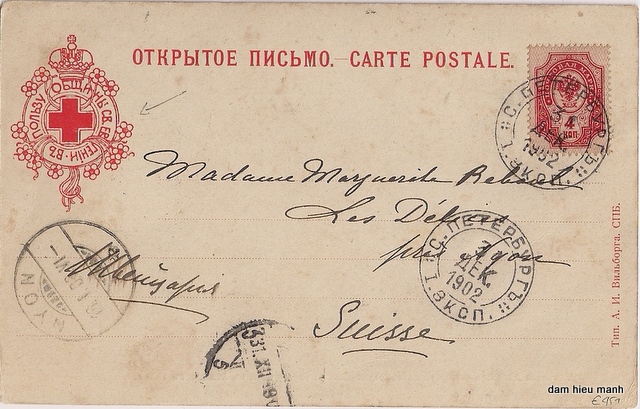 ОТКРЫТОЕ ПИСЬМО.—CARTE POSTALE.
ВЪ ПОЛЬЗУ ОБЩИНЫ СВ. ЕВГЕНІИ
4
КОП.
С. ПЕТЕРБУРГЪ
3
ДЕК
1902
1 ЭКСП.
Madame Marguerite
Les
près Nyon
Швейцарія
Suisse
С. ПЕТЕРБУРГЪ
ДЕК.
1902
1 ЭКСП.
NYON
31.XII
Тип. А. И. Вильборга. СПБ.
dam hieu manh